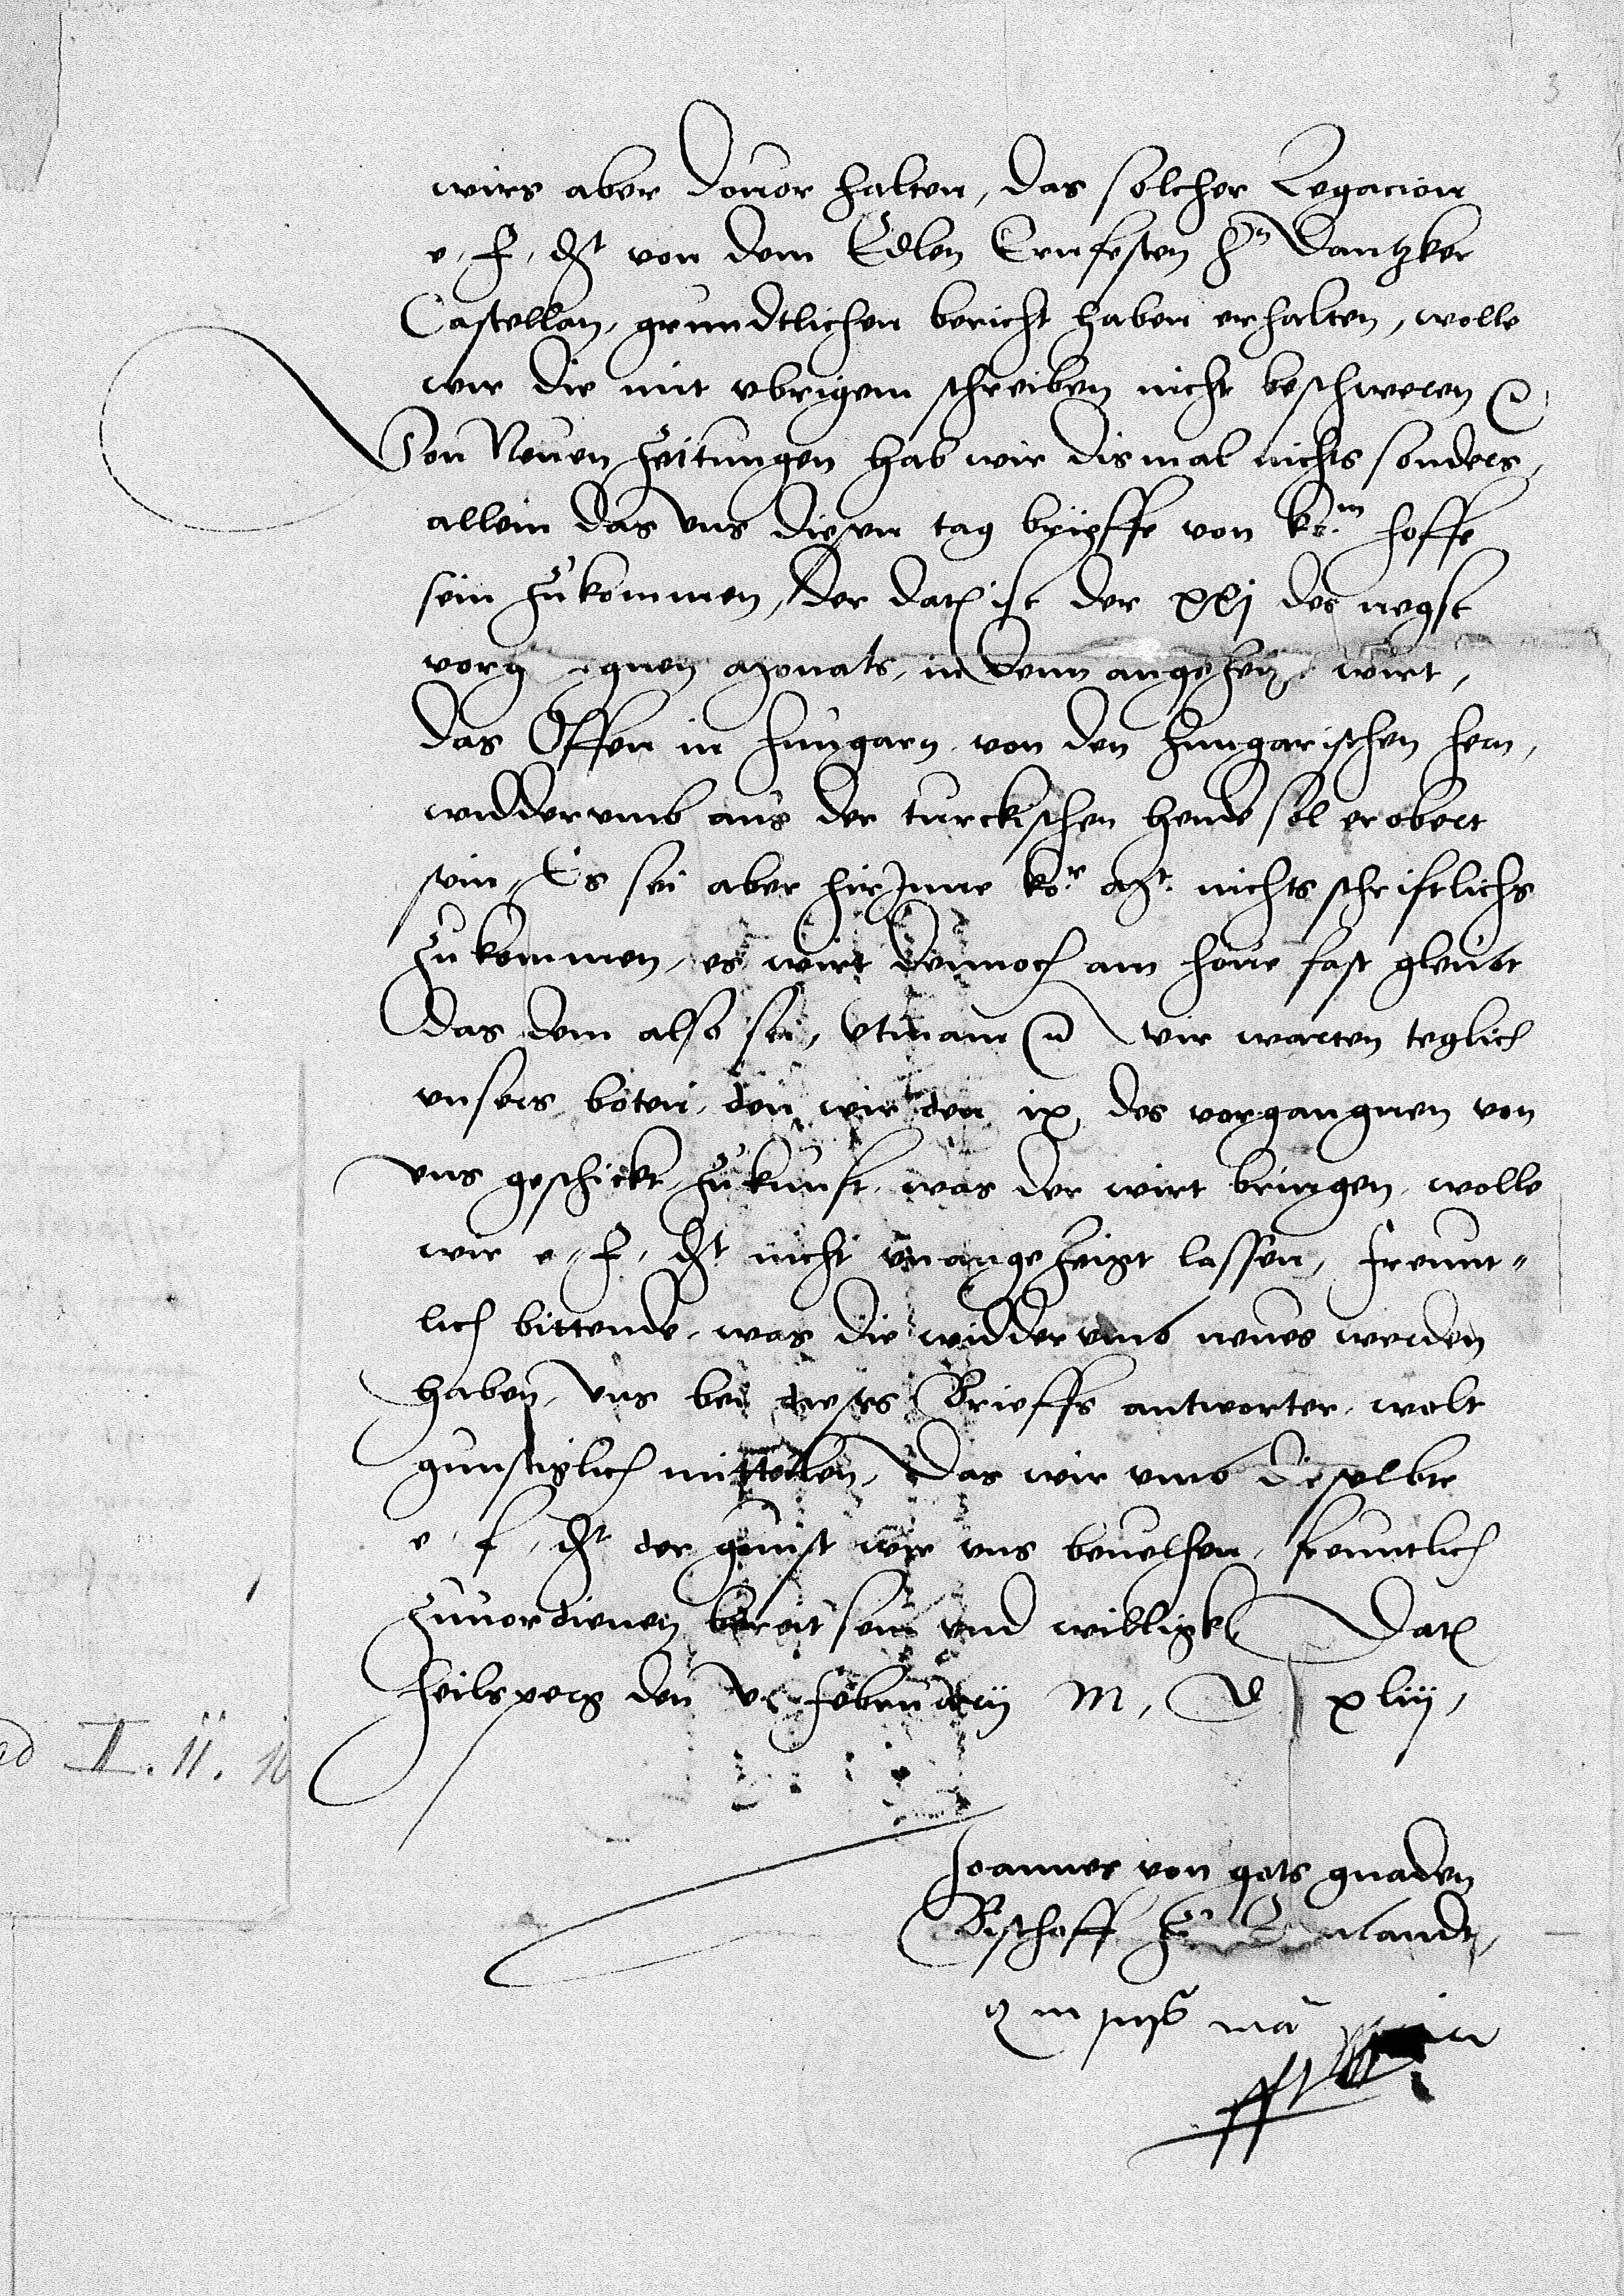 3
wirs aber douor halten, das solcher Legacion
e, f, dt von dem Edlen Ernfesten hn Dantzker
Castellan, grundtlichen bericht haben erhalten, wolle
wir die mit vbrigem schreiben nicht beschweren etc
Von Neuen Zeitungen hab wir dismal nichts sonders,
allein das vns diesen tag brieffe von ko.n hoffe
sein zukommen, der dat ist der xxj des negst
vorg gnen Monats, in denn angezeigt wirt,
das Offen in hungarn von den hungarischen hern,
widderumb aus der turckischen hende sol erobert
sein, Es sei aber hirInne ko.r Mt. nichts schriftlichs
zukommen, es wirt dennoch am houe fast gleubt
das dem also sei, Vtinam etc wir warten teglich
vnsers boten, den wir den ix des vorgangnen von
vns geschickt, zukunft, was der wirt bringen, wolle
wir e, f, dt nicht vnangezeigt lassen, freunt-
lich bittende, was die widderumb neues werden
haben, vns bei dieses Brieffs antworter, wolt
gunstiglich mitteilen, Das wir vmb dieselbte
e, f, dt der gunst wir vns beuelhen, freuntlich
zuuordienen bereit sein vnd willigk Dat
Heilsperg den Februarii M, D xliij,
Joannes von gots gnaden
Bischoff zu landt,
ad II. 11.